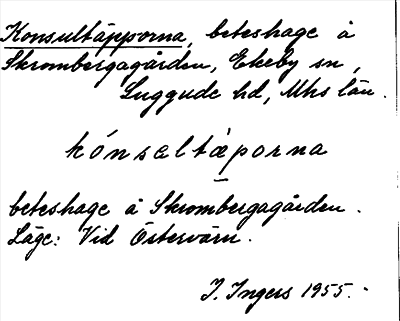 Konsultäpporna, beteshage å
Skrombergagården, Ekeby sn,
Luggude hd, Mhs län.
kónsaltæporna
beteshage å Skrombergagården.
Läge: Vid Östervärn.
I. Ingers 1955.